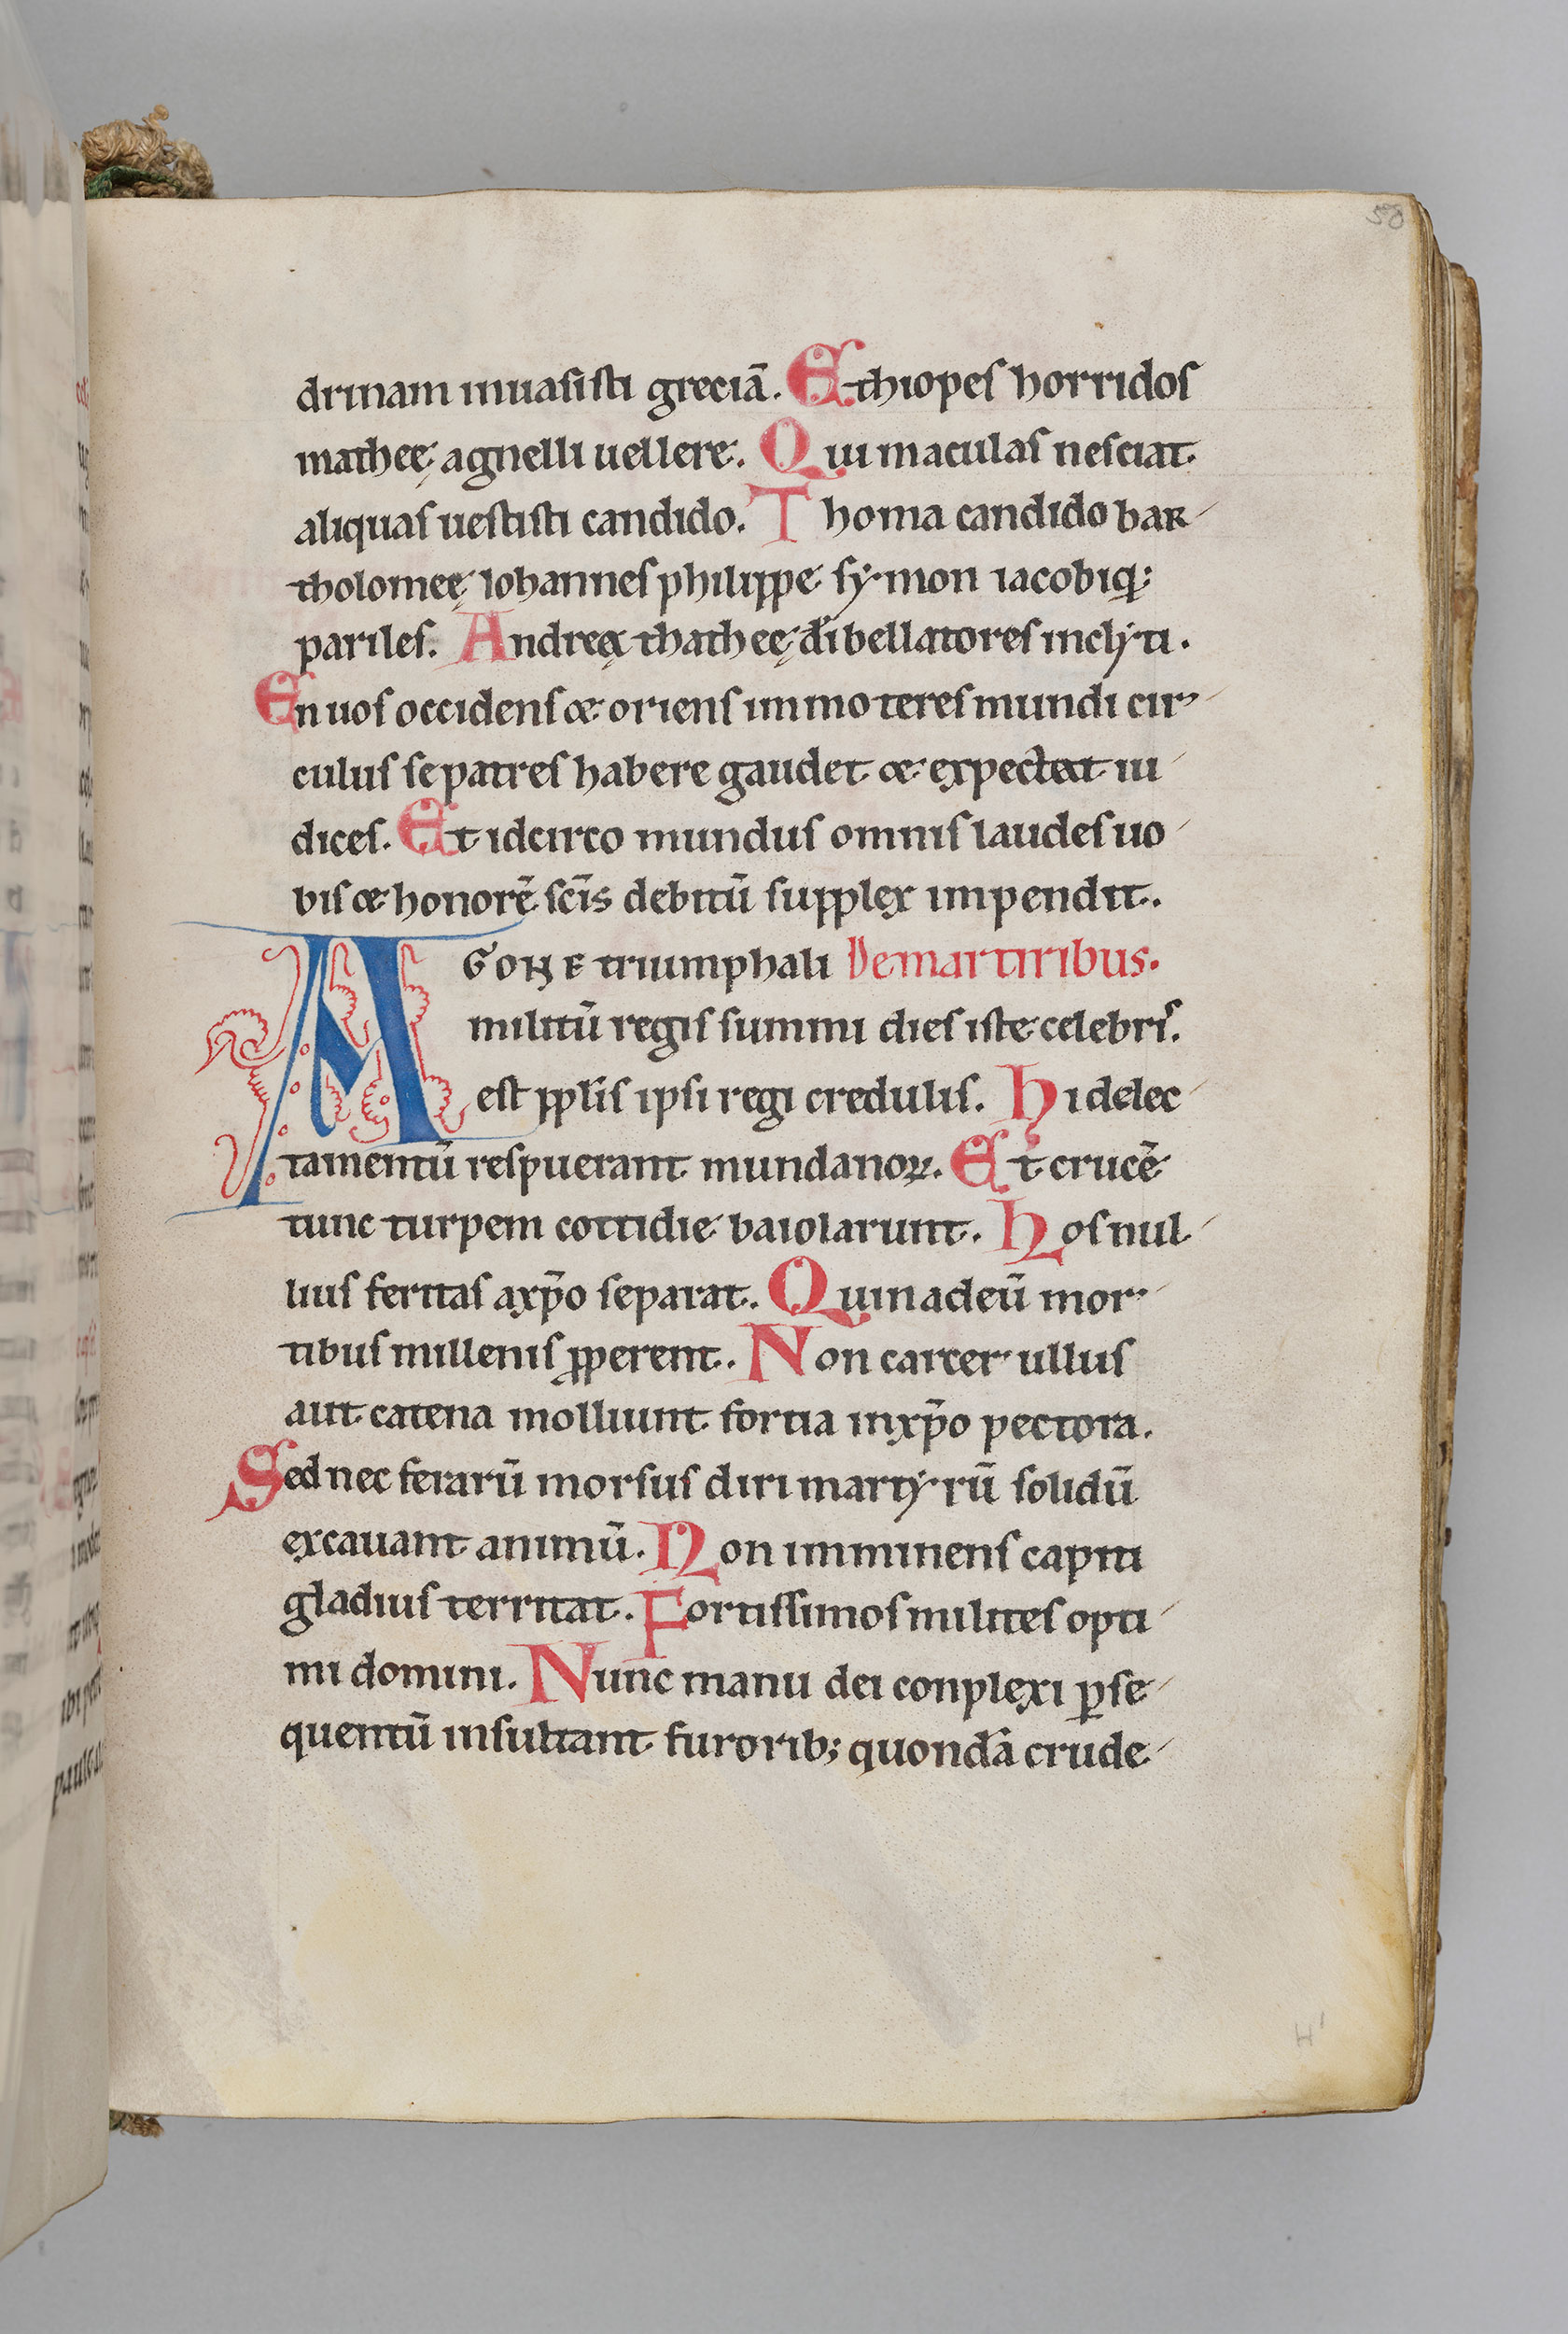 58
drinam inuasisti greciā. Ethiopes horridos
matheę agnelli uellere. Qui maculas nesciat
aliquas uestisti candido. Thoma candido bar
tholomeę iohannes philippe symon iacobiq;
pariles. Andrea thatheę dī bellatores inclyti.
En uos occidens & oriens immo teres mundi cir
culus se patres habere gaudet & expectat iu
dices. Et idcirco mundus omnis laudes uo
bis & honorē scīs debitū supplex impendit.
AGONE triumphali De martiribus.
militū regis summi dies iste celebris.
est pplīs ipsi regi credulis. Hi delec
tamentū respuerant mundanoꝝ. Et crucē
tunc turpem cottidie baiolarunt. Hos nul
lius feritas axp̄o separat. Quin adeū mor
tibus millenis ꝓperent. Non carcer ullus
aut catena molliunt fortia inxp̄o pectora.
Sed nec ferarū morsus diri martyrū solidū
excauant animū. Non imminens capiti
gladius territat. Fortissimos milites opti
mi domini. Nunc manu dei conplexi ꝑse
quentū insultant furorib; quondā crude